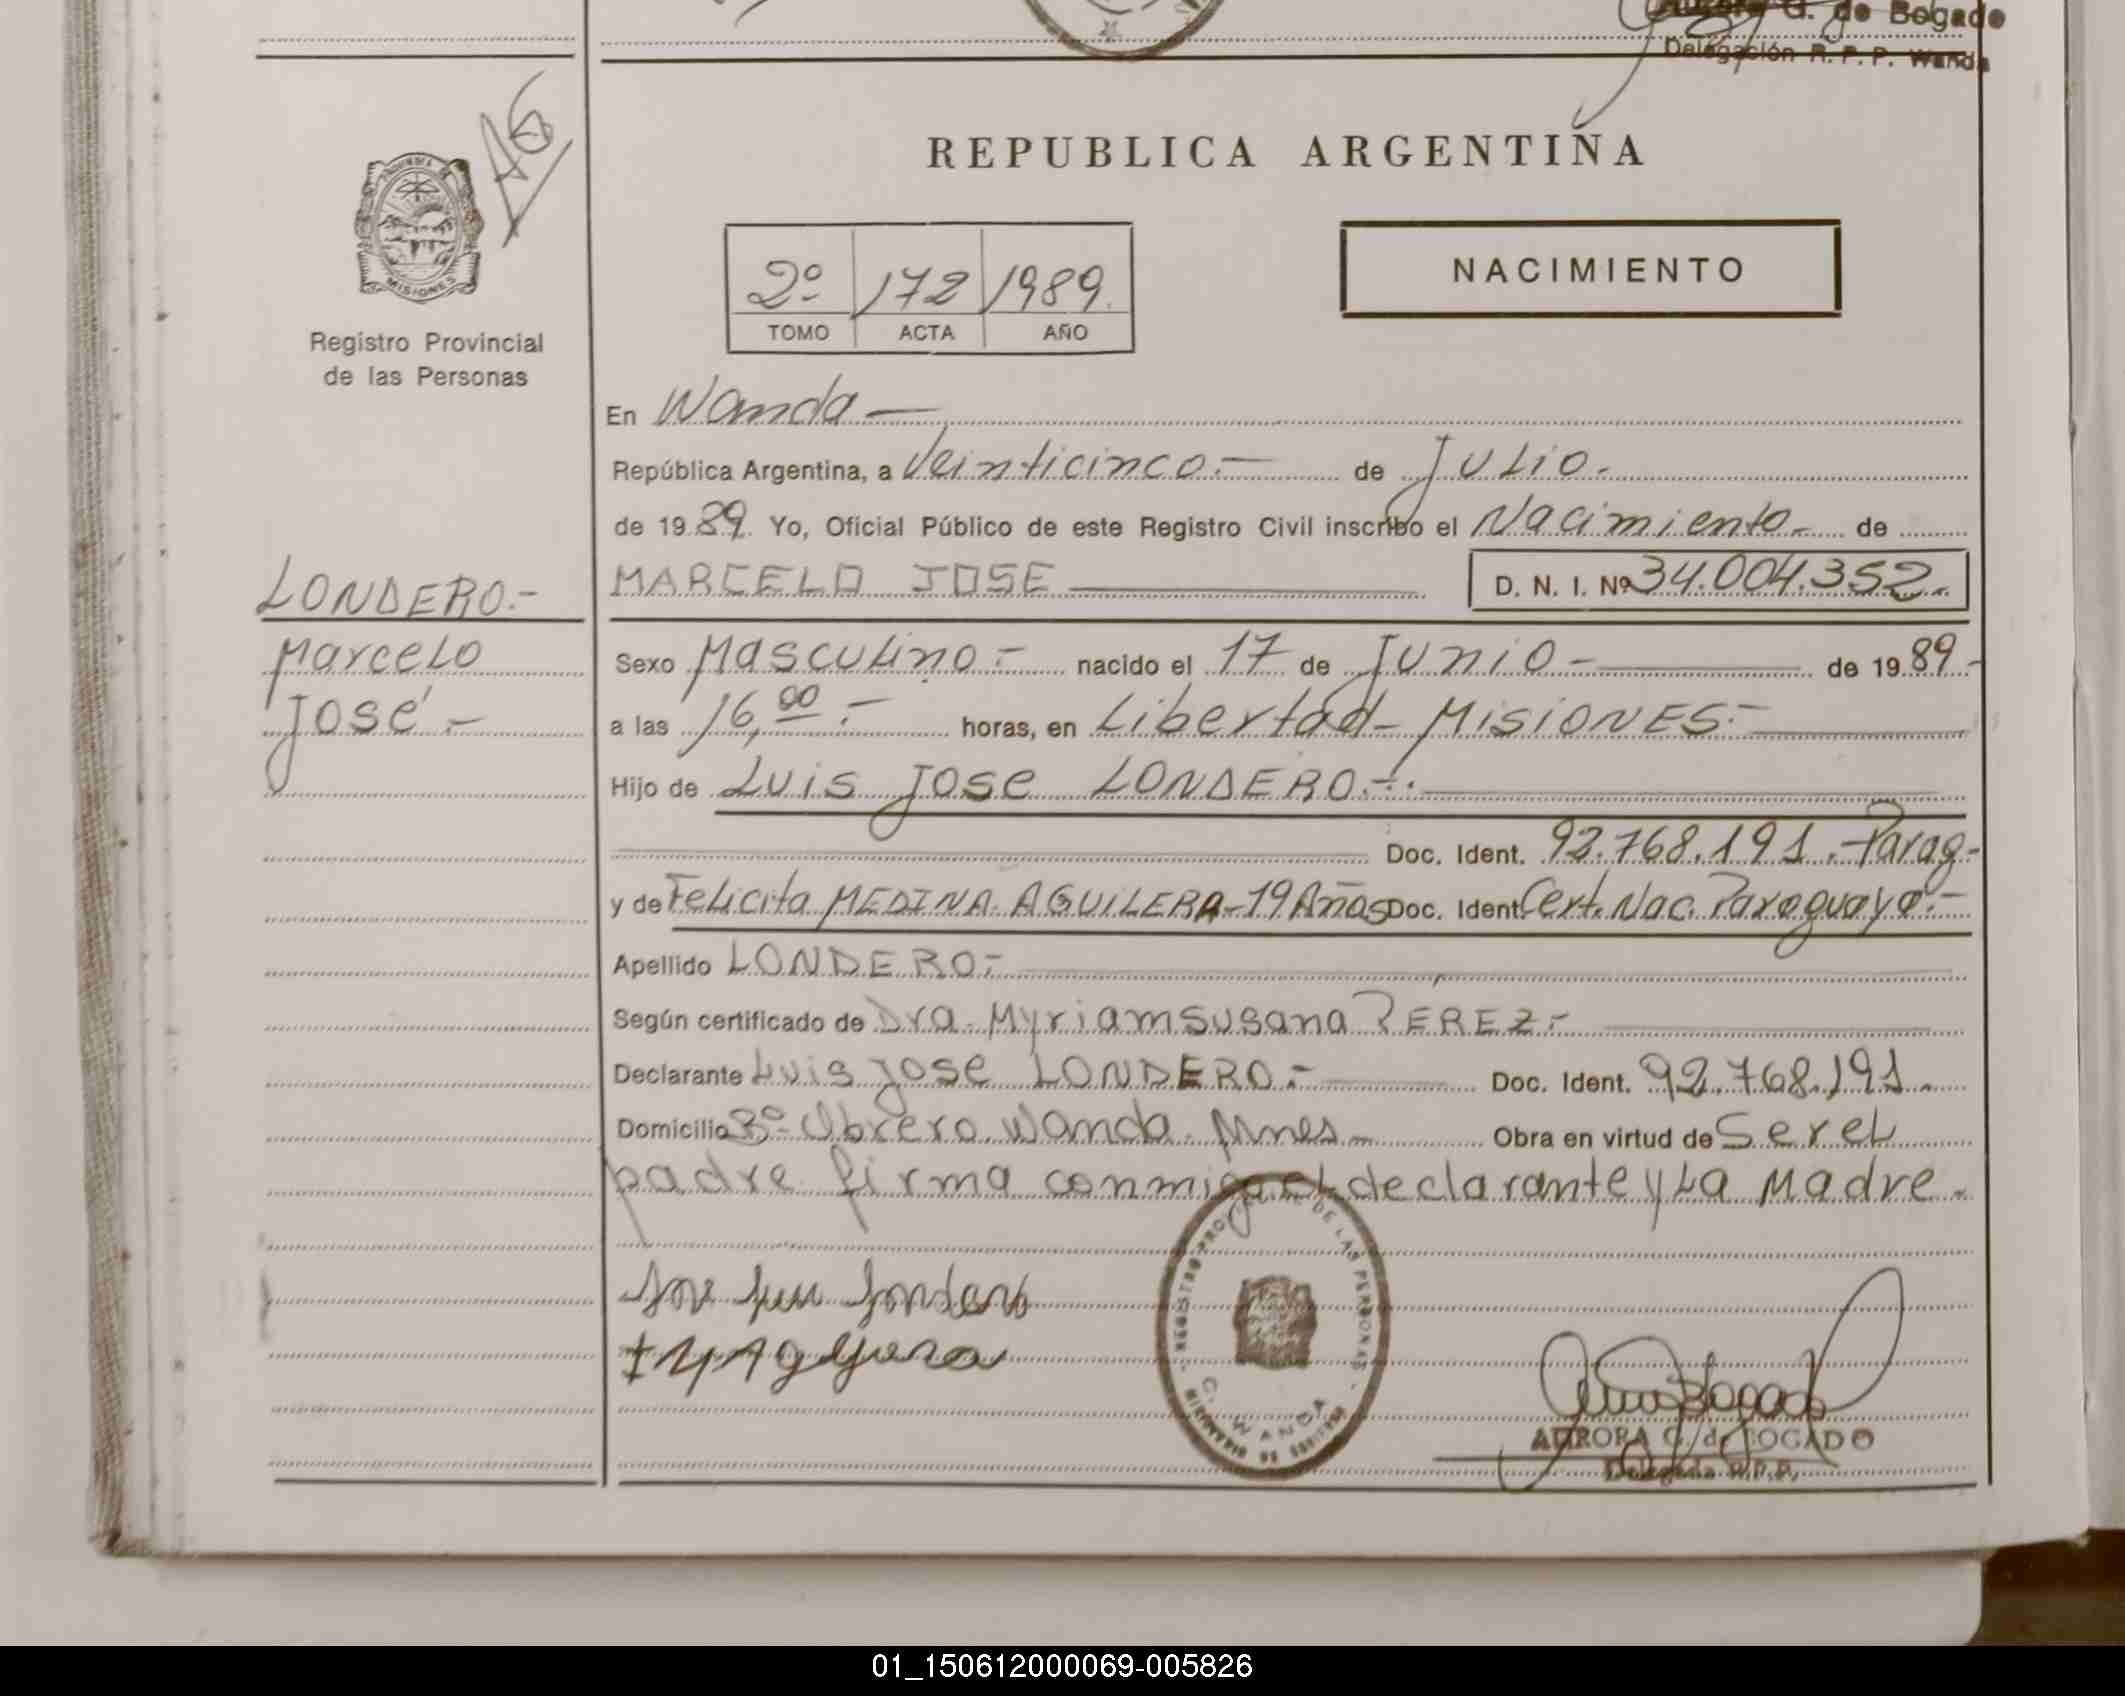 G. de Bogado
Delegación R. P. P. Wanda
REPUBLICA ARGENTINA
NACIMIENTO
2º 172 1989.
TOMO ACTA AÑO
MISIONES
Registro Provincial
de las Personas
En Wanda —
República Argentina, a Veinticinco.— de Julio.
de 1989. Yo, Oficial Público de este Registro Civil inscribo el Nacimiento.- de
MARCELO JOSE — D. N. I. Nº 34.004.352.
LONDERO.-
Marcelo
José.-
Sexo Masculino.- nacido el 17 de Junio - de 1989.-
a las 16,00.- horas, en Libertad - MISIONES.-
Hijo de Luis Jose LONDERO.-.
Doc. Ident. 92.768.191.-Parag-
y de Felicita MEDINA AGUILERA-19 Años Doc. Ident. Cert. Nac. Paraguaya.-
Apellido LONDERO.-
Según certificado de Dra. Myriam Susana PEREZ.-
Declarante Luis Jose LONDERO.- Doc. Ident. 92.768.191.
Domicilio Bº Obrero. Wanda. Mnes. Obra en virtud de Ser el
padre firma conmigo el declarante y La Madre.
REGISTRO PROVINCIAL DE LAS PERSONAS
WANDA
AURORA G. de BOGADO
Delegada R.P.P.
01_150612000069-005826